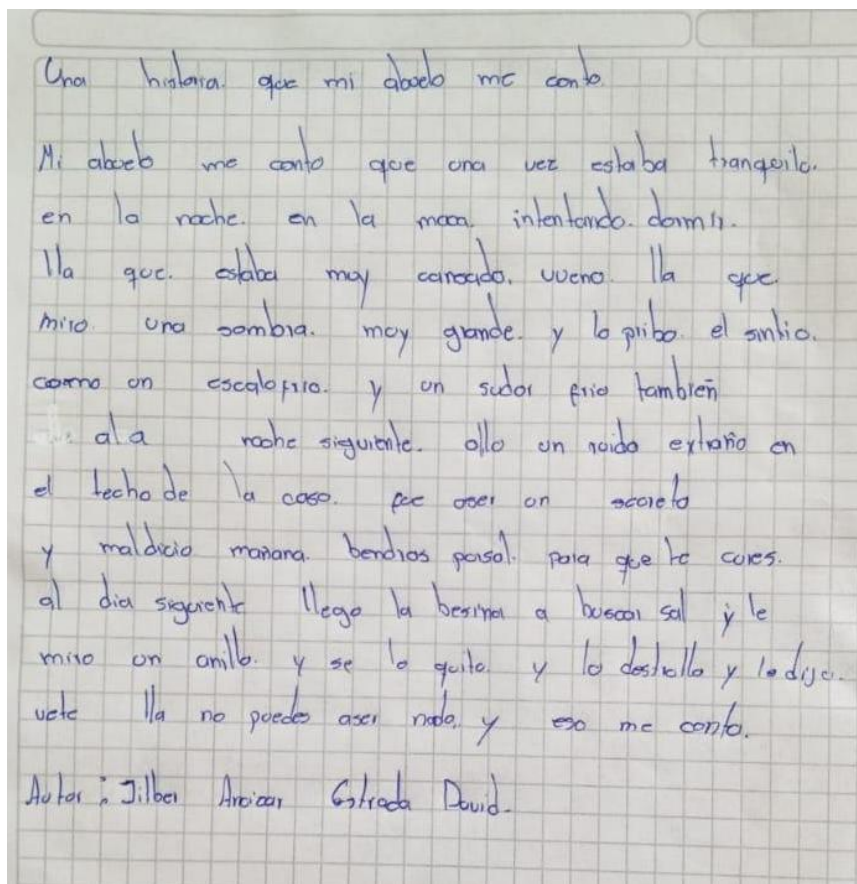 Una historia. que mi abuelo me conto.
Mi abuelo me conto que una vez estaba tranquilo.
en la noche. en la maca. intentando. dormir.
lla que. estaba muy cansado. vueno. lla que
miro. una sombra. muy grande. y lo pribo. el sintio.
como un escalofrio. y un sudor frio tambien
ala noche siguiente. ollo un roido extraño en
el techo de la casa. fue aser un secreto
y maldicio mañana. bendras porsal. para que te cures.
al dia siguiente llego la besina a buscar sal y le
miro un anillo. y se lo quito. y lo destrollo y le dijo.
vete lla no puedes aser nada. y eso me conto.
Autor: Jilber Estrada David.